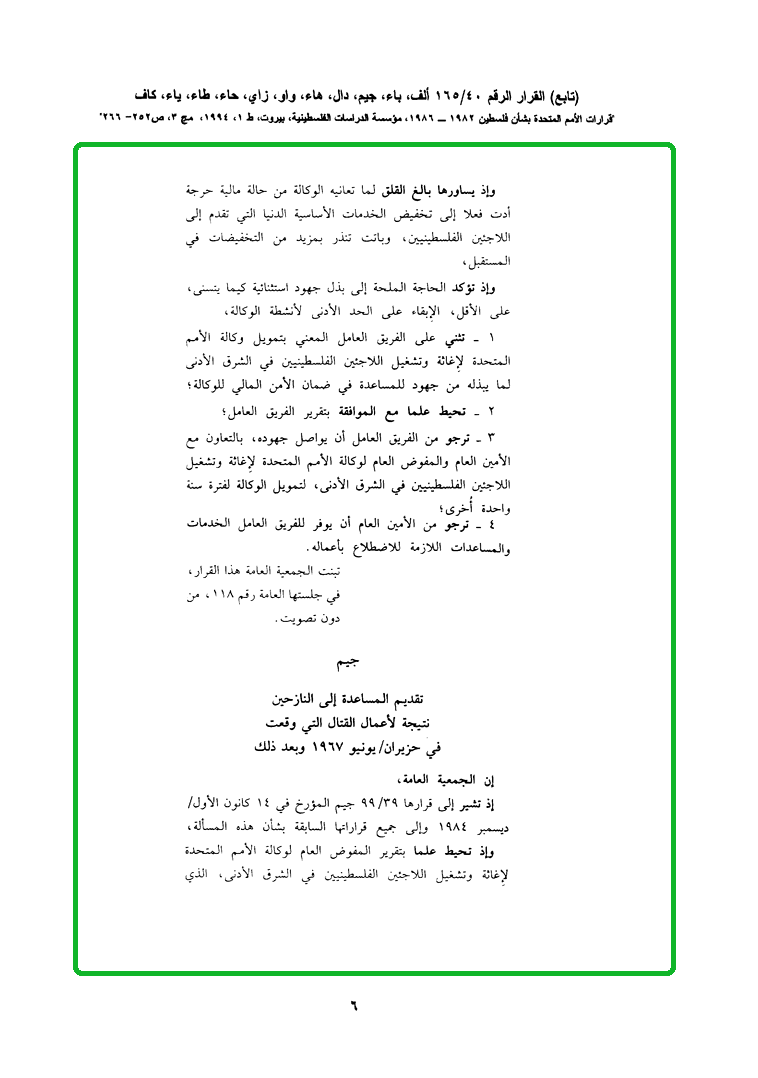 (تابع) القرار الرقم ١٦٥/٤٠ ألف، باء، جيم، دال، هاء، واو، زاي، حاء، طاء، ياء، كاف
"قرارات الأمم المتحدة بشأن فلسطين ١٩٨٢ ــ ١٩٨٦، مؤسسة الدراسات الفلسطينية، بيروت، ط ١، ١٩٩٤، مج ٣، ص٢٥٢- ٢٦٦"
وإذ يساورها بالغ القلق لما تعانيه الوكالة من حالة مالية حرجة
أدت فعلا إلى تخفيض الخدمات الأساسية الدنيا التي تقدم إلى
اللاجئين الفلسطينيين، وباتت تنذر بمزيد من التخفيضات في
المستقبل،
وإذ تؤكد الحاجة الملحة إلى بذل جهود استثنائية كيما يتسنى،
على الأقل، الإبقاء على الحد الأدنى لأنشطة الوكالة،
١ ـ تثني على الفريق العامل المعني بتمويل وكالة الأمم
المتحدة لإغاثة وتشغيل اللاجئين الفلسطينيين في الشرق الأدنى
لما يبذله من جهود للمساعدة في ضمان الأمن المالي للوكالة؛
٢ ـ تحيط علما مع الموافقة بتقرير الفريق العامل؛
٣ ـ ترجو من الفريق العامل أن يواصل جهوده، بالتعاون مع
الأمين العام والمفوض العام لوكالة الأمم المتحدة لإغاثة وتشغيل
اللاجئين الفلسطينيين في الشرق الأدنى، لتمويل الوكالة لفترة سنة
واحدة أُخرى؛
٤ ـ ترجو من الأمين العام أن يوفر للفريق العامل الخدمات
والمساعدات اللازمة للاضطلاع بأعماله.
تبنت الجمعية العامة هذا القرار،
في جلستها العامة رقم ١١٨، من
دون تصويت.
جيم
تقديم المساعدة إلى النازحين
نتيجة لأعمال القتال التي وقعت
في حزيران/ يونيو ١٩٦٧ وبعد ذلك
إن الجمعية العامة،
إذ تشير إلى قرارها ٩٩/٣٩ جيم المؤرخ في ١٤ كانون الأول/
ديسمبر ١٩٨٤ وإلى جميع قراراتها السابقة بشأن هذه المسألة،
وإذ تحيط علما بتقرير المفوض العام لوكالة الأمم المتحدة
لإغاثة وتشغيل اللاجئين الفلسطينيين في الشرق الأدنى، الذي
٦